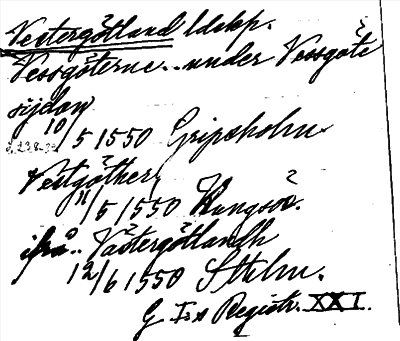 Vestergötland ldskp.
Vessgöterne.. under Vessgöte
sijdon
10/5 1550 Gripsholm
Vestgöther,
11/5 1550 Kungsör.
ifrå.. Västergötlandh
12/6 1550 Sthlm.
G I:s Registr. XXI.